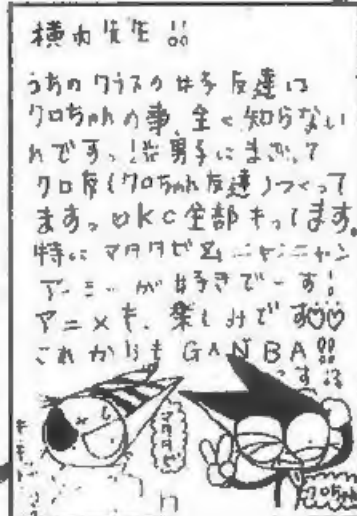 横内先生!!
うちのクラスの女子友達は
クロちゃんの事、全く知らない
んです。男子にまざって
クロ友(クロちゃん友達)つくって
ます。KC全部もってます。
特にマタタビ&ニャンニャン
アーミーが好きでーす!
アニメも、楽しみです♡♡
これからもGANBA!!
です
マタタビ
クロちゃん